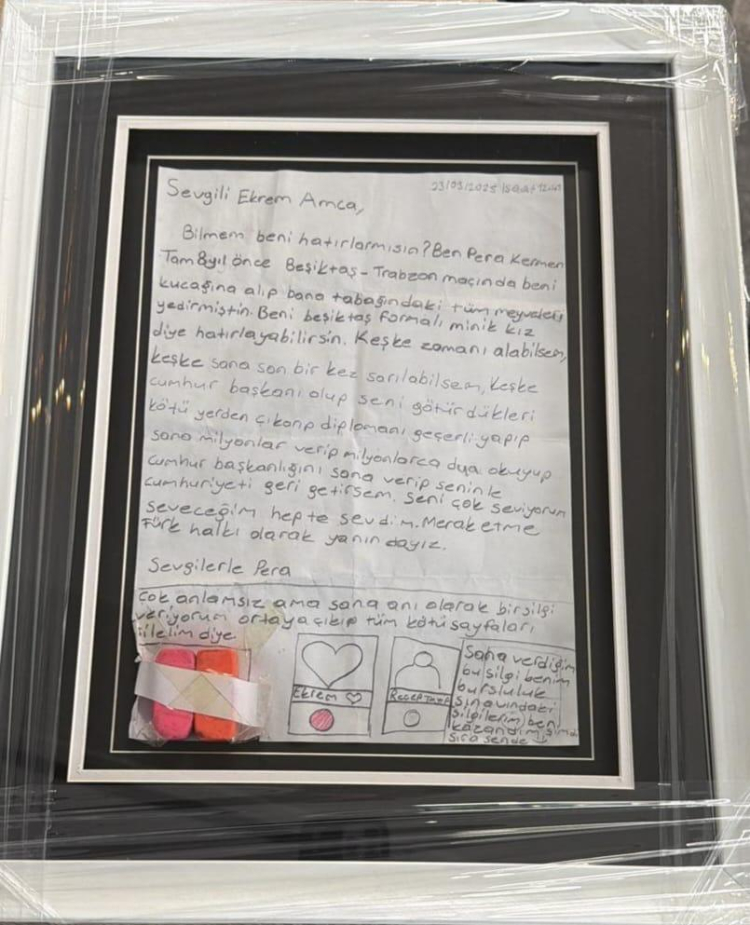 23/03/2025 Saat 12:41
Sevgili Ekrem Amca,
Bilmem beni hatırlarmısın? Ben Pera Kermen
Tam 8 yıl önce Beşiktaş-Trabzon maçında beni
kucağına alıp bana tabağındaki tüm meyveleri
yedirmiştin. Beni beşiktaş formalı minik kız
diye hatırlayabilirsin. Keşke zamanı alabilsem,
keşke sana son bir kez sarılabilsem, keşke
cumhur başkanı olup seni götürdükleri
kötü yerden çıkarıp diplomanı geçerli yapıp
sana milyonlar verip milyonlarca dua okuyup
cumhur başkanlığını sana verip seninle
cumhuriyeti geri getirsem. Seni çok seviyorum
seveceğim hepte sevdim. Merak etme
Türk halkı olarak yanındayız.
Sevgilerle Pera
Çok anlamsız ama sana anı olarak bir silgi
veriyorum ortaya çıkıp tüm kötü sayfaları
silelim diye
Ekrem
Recep
Sana verdiğim
bu silgi benim
bursluluk
sınavındaki
silgilerim ben
kazandım şimdi
sıra sende